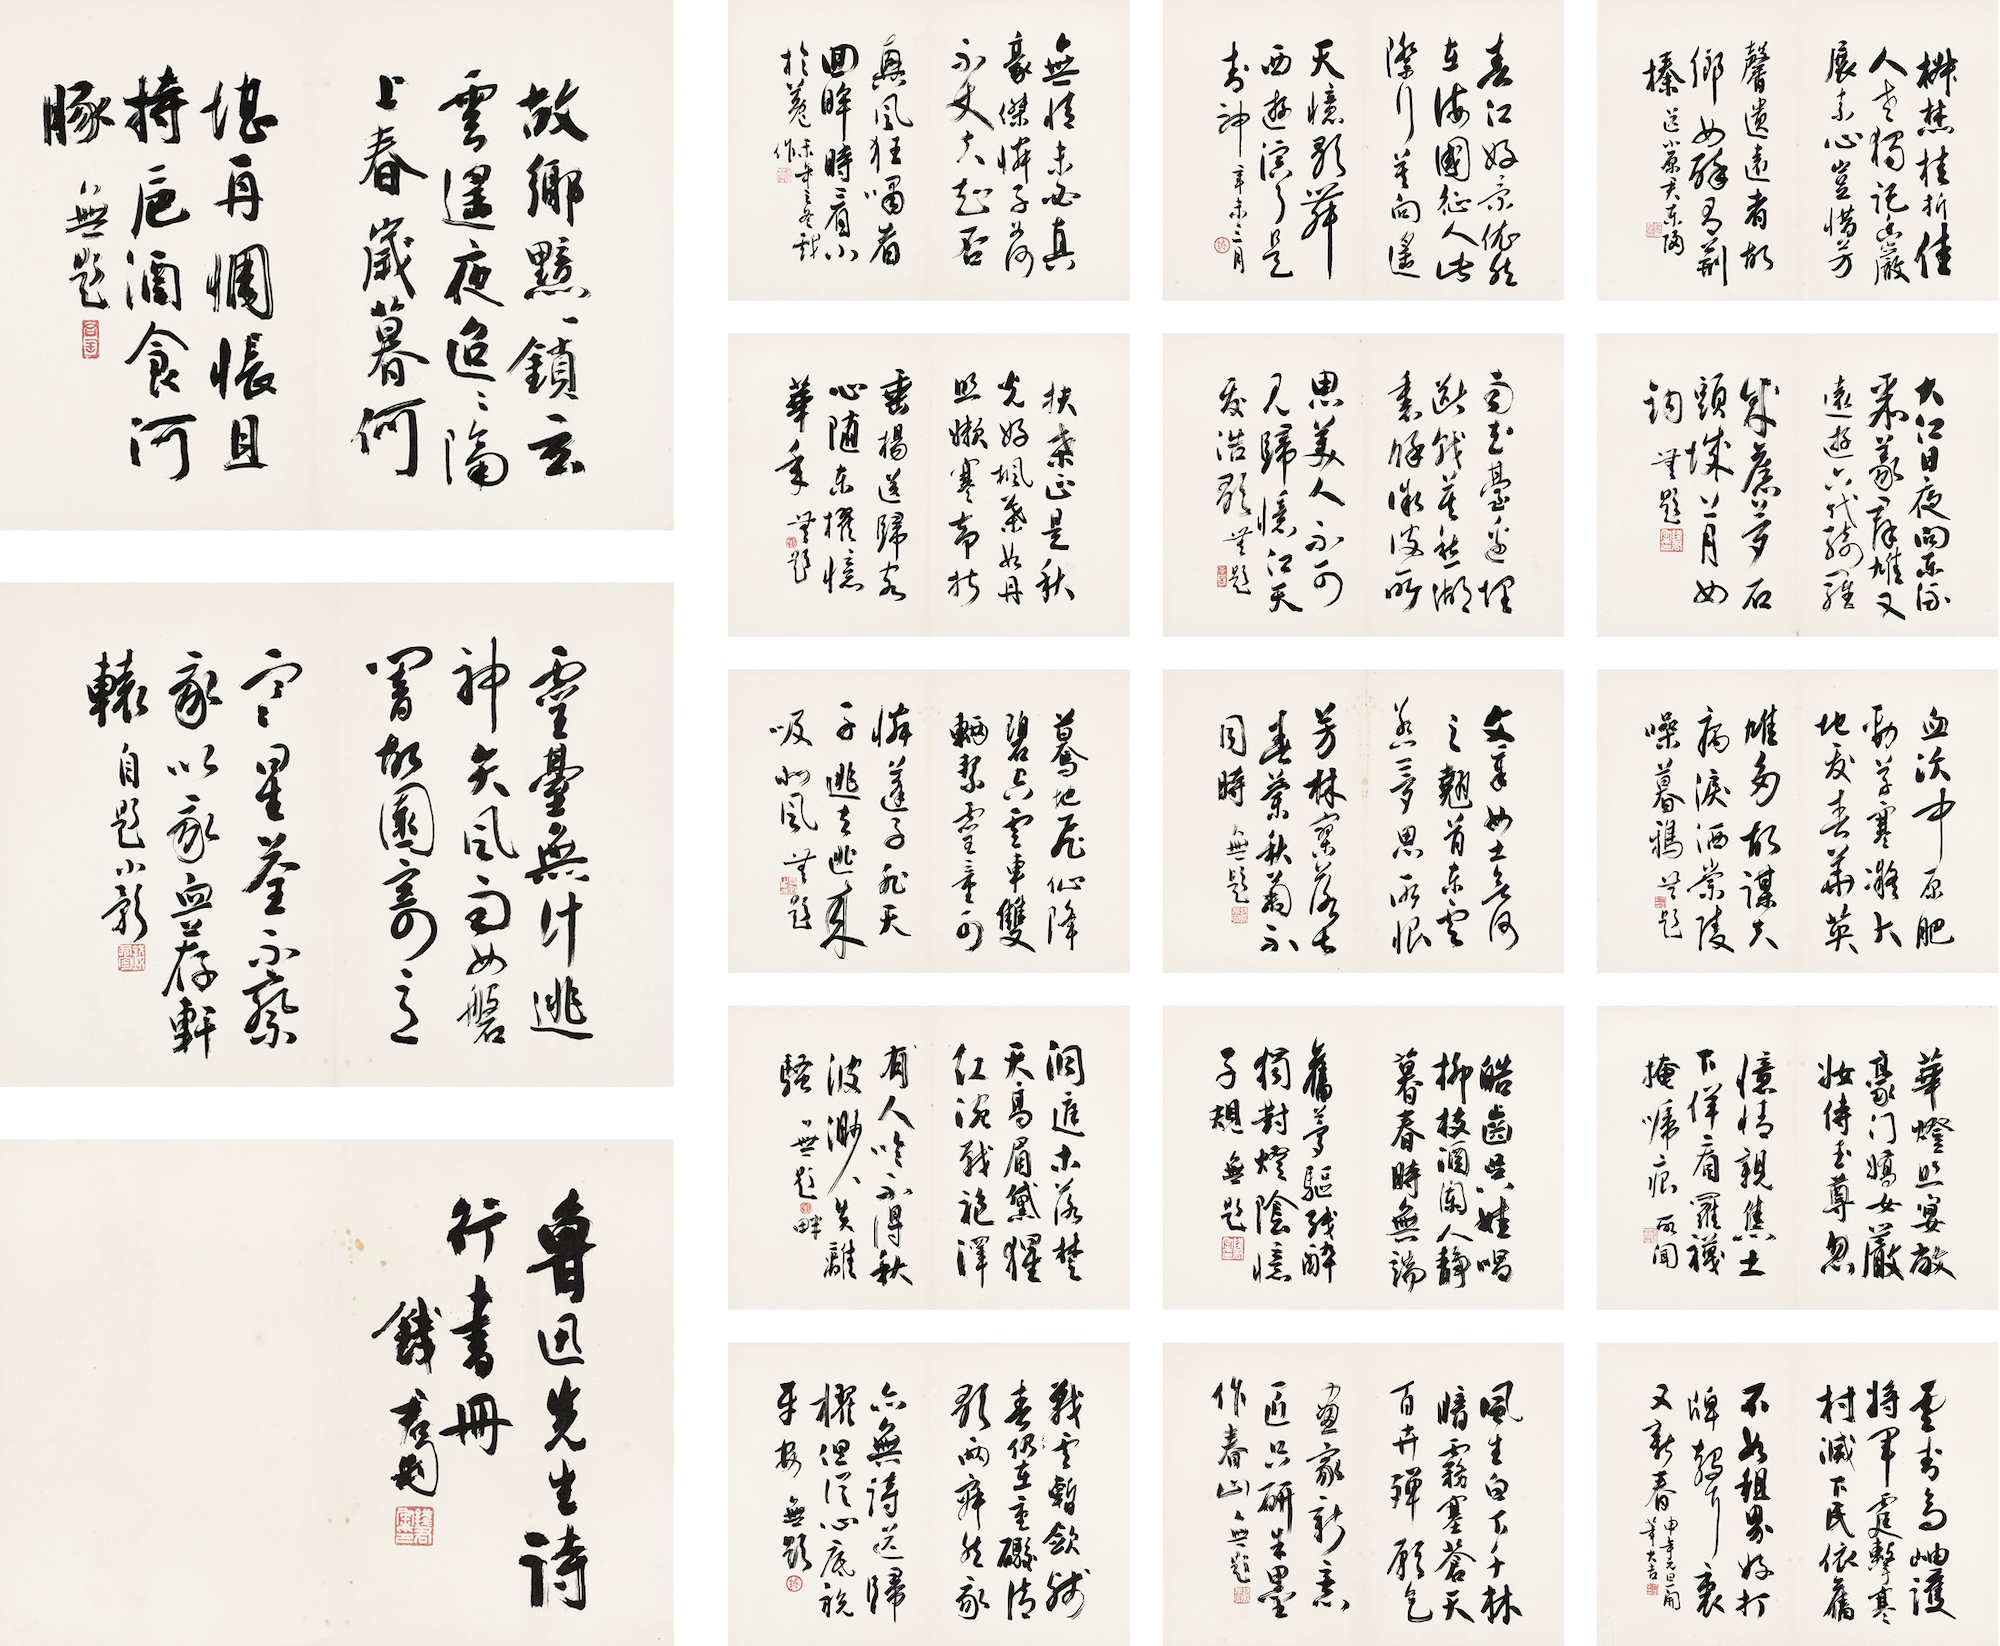 故鄉黯黯鎖玄
雲遙夜迢迢隔
上春歲暮何
堪再惆悵且
持卮酒食河
豚 無題
靈臺無計逃
神矢風雨如磐
闇故園寄意
寒星荃不察
我以我血荐軒
轅 自題小影
魯迅先生詩
行書冊
錢君匋題
無情未必真
豪傑憐子如何
不丈夫知否
興風狂嘯者
回眸時看小
於菟 未年之冬戲
作
扶桑正是秋
光好楓葉如丹
照嫩寒卻折
垂楊送歸客
心隨東櫂憶
華年 無題
驀地飛仙降
碧空雲車雙
輛挈靈童可
憐蓬子非天
子逃去逃來
吸北風 無題
洞庭木落楚
天高眉黛猩
紅涴戰袍澤
有人吟不得秋
波渺渺失離
騷 無題 畔
戰雲暫斂殘
春仍在重礮清
歌兩寂然我
亦無詩送歸
櫂但從心底祝
平安 無題
春江好景依然
在海國征人此
際行莫向遙
天憶歌舞
西遊演了是
封神 辛未三月
雨花臺邊埋
斷戟莫愁湖
裏餘微波所
思美人不可
見歸憶江天
發浩歌 無題
文章如土欲何
之翹首東雲
惹夢思所恨
芳林寥落甚
春蘭秋菊不
同時 無題
皓齒吳娃唱
柳枝酒闌人靜
暮春時無端
舊夢驅殘醉
獨對燈陰憶
子規 無題
風生白下千林
暗霧塞蒼天
百卉殫願乞
畫家新意
匠只研朱墨
作春山 無題
椒焚桂折佳
人老獨託幽巖
展素心豈惜芳
馨遺遠者故
鄉如醉有荊
榛 送小原君東歸
大江日夜向東流
聚義群雄又
遠遊六代綺羅
成舊夢石
頭城上月如
鉤 無題
血沃中原肥
勁草寒凝大
地發春華英
雄多故謀夫
病淚洒崇陵
噪暮鴉 無題
華燈照宴敞
豪門嬌女嚴
妝侍玉尊忽
憶情親焦土
下佯看羅襪
掩啼痕 所聞
雲封高岫護
將軍霆擊寒
村滅下民依舊
不如租界好打
牌聲裏
又新春 申年元旦開
筆大吉